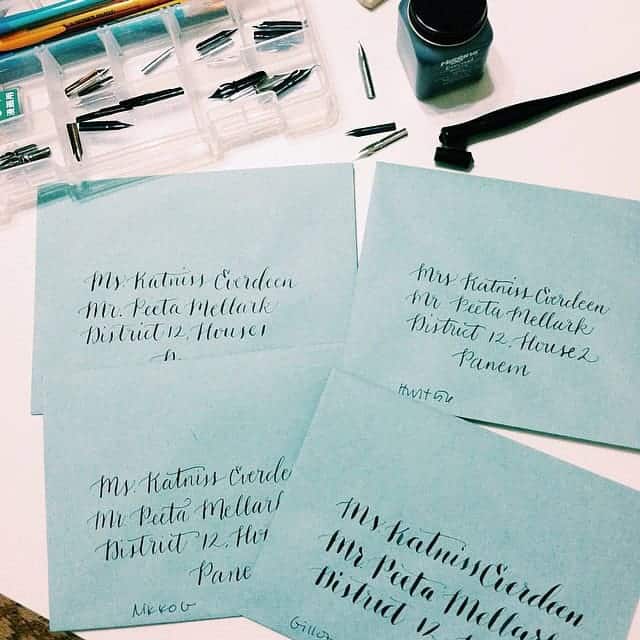 Higgins
Eternal
Ms. Katniss Everdeen
Mr. Peeta Mellark
District 12, House 1
Mrs Katniss Everdeen
Mr Peeta Mellark
District 12, House 2
Panem
Hunt 56
Ms. Katniss Everde
Mr Peeta Mellar
District 12, Hou
Pane
Nikko G
Ms Katniss Everdeen
Mr Peeta Mellark
District 12
Gillot